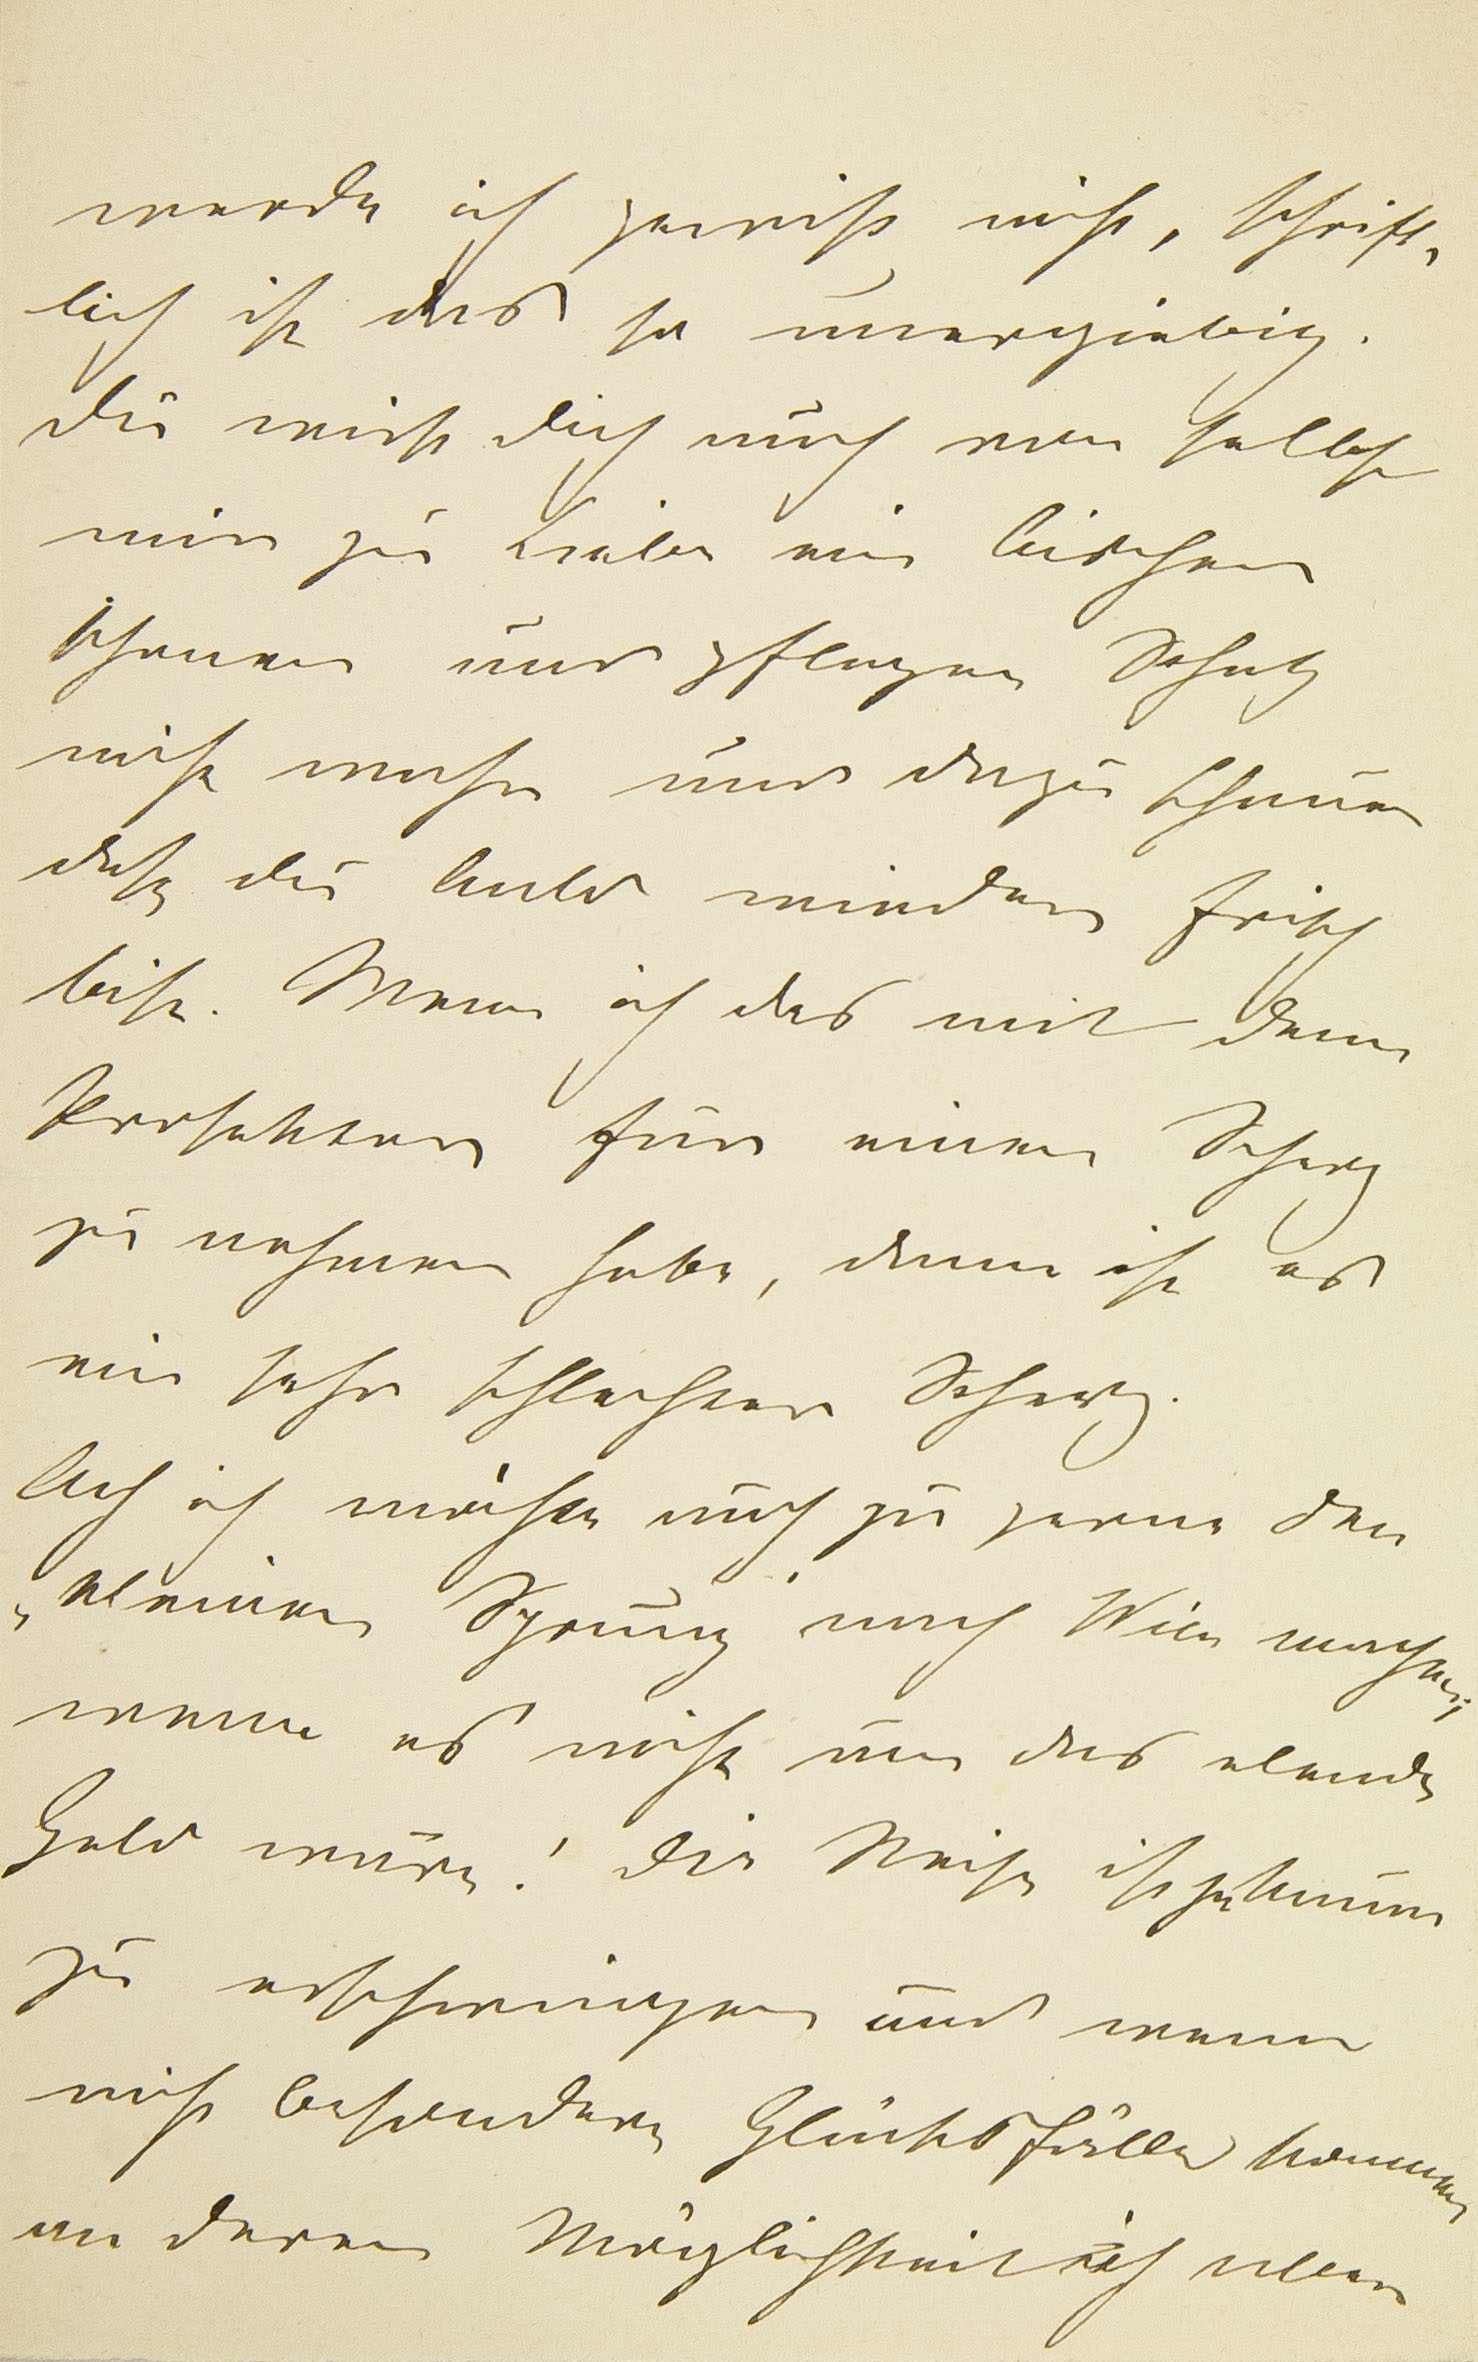 werde ich gewiss nicht, schrift-
lich ist das so unergiebig.
Du wirst dich auch von selbst
mir zu Liebe ein bischen
schonen und pflegen Schatz
nicht wahr und dazu schauen
dass du bald wieder frisch
bist. Wenn ich das mit dem
für einen Scherz
zu nehmen habe, dann ist es
ein sehr schlechter Scherz.
Ach ich möchte auch zu gerne den
„kleinen Sprung" nach Wien machen,
wenn es nicht um das elende
Geld wäre! Die Reise ist ja kaum
zu erschwingen und wenn
nicht besondere Glücksfälle kommen
an deren Möglichkeit ich aber